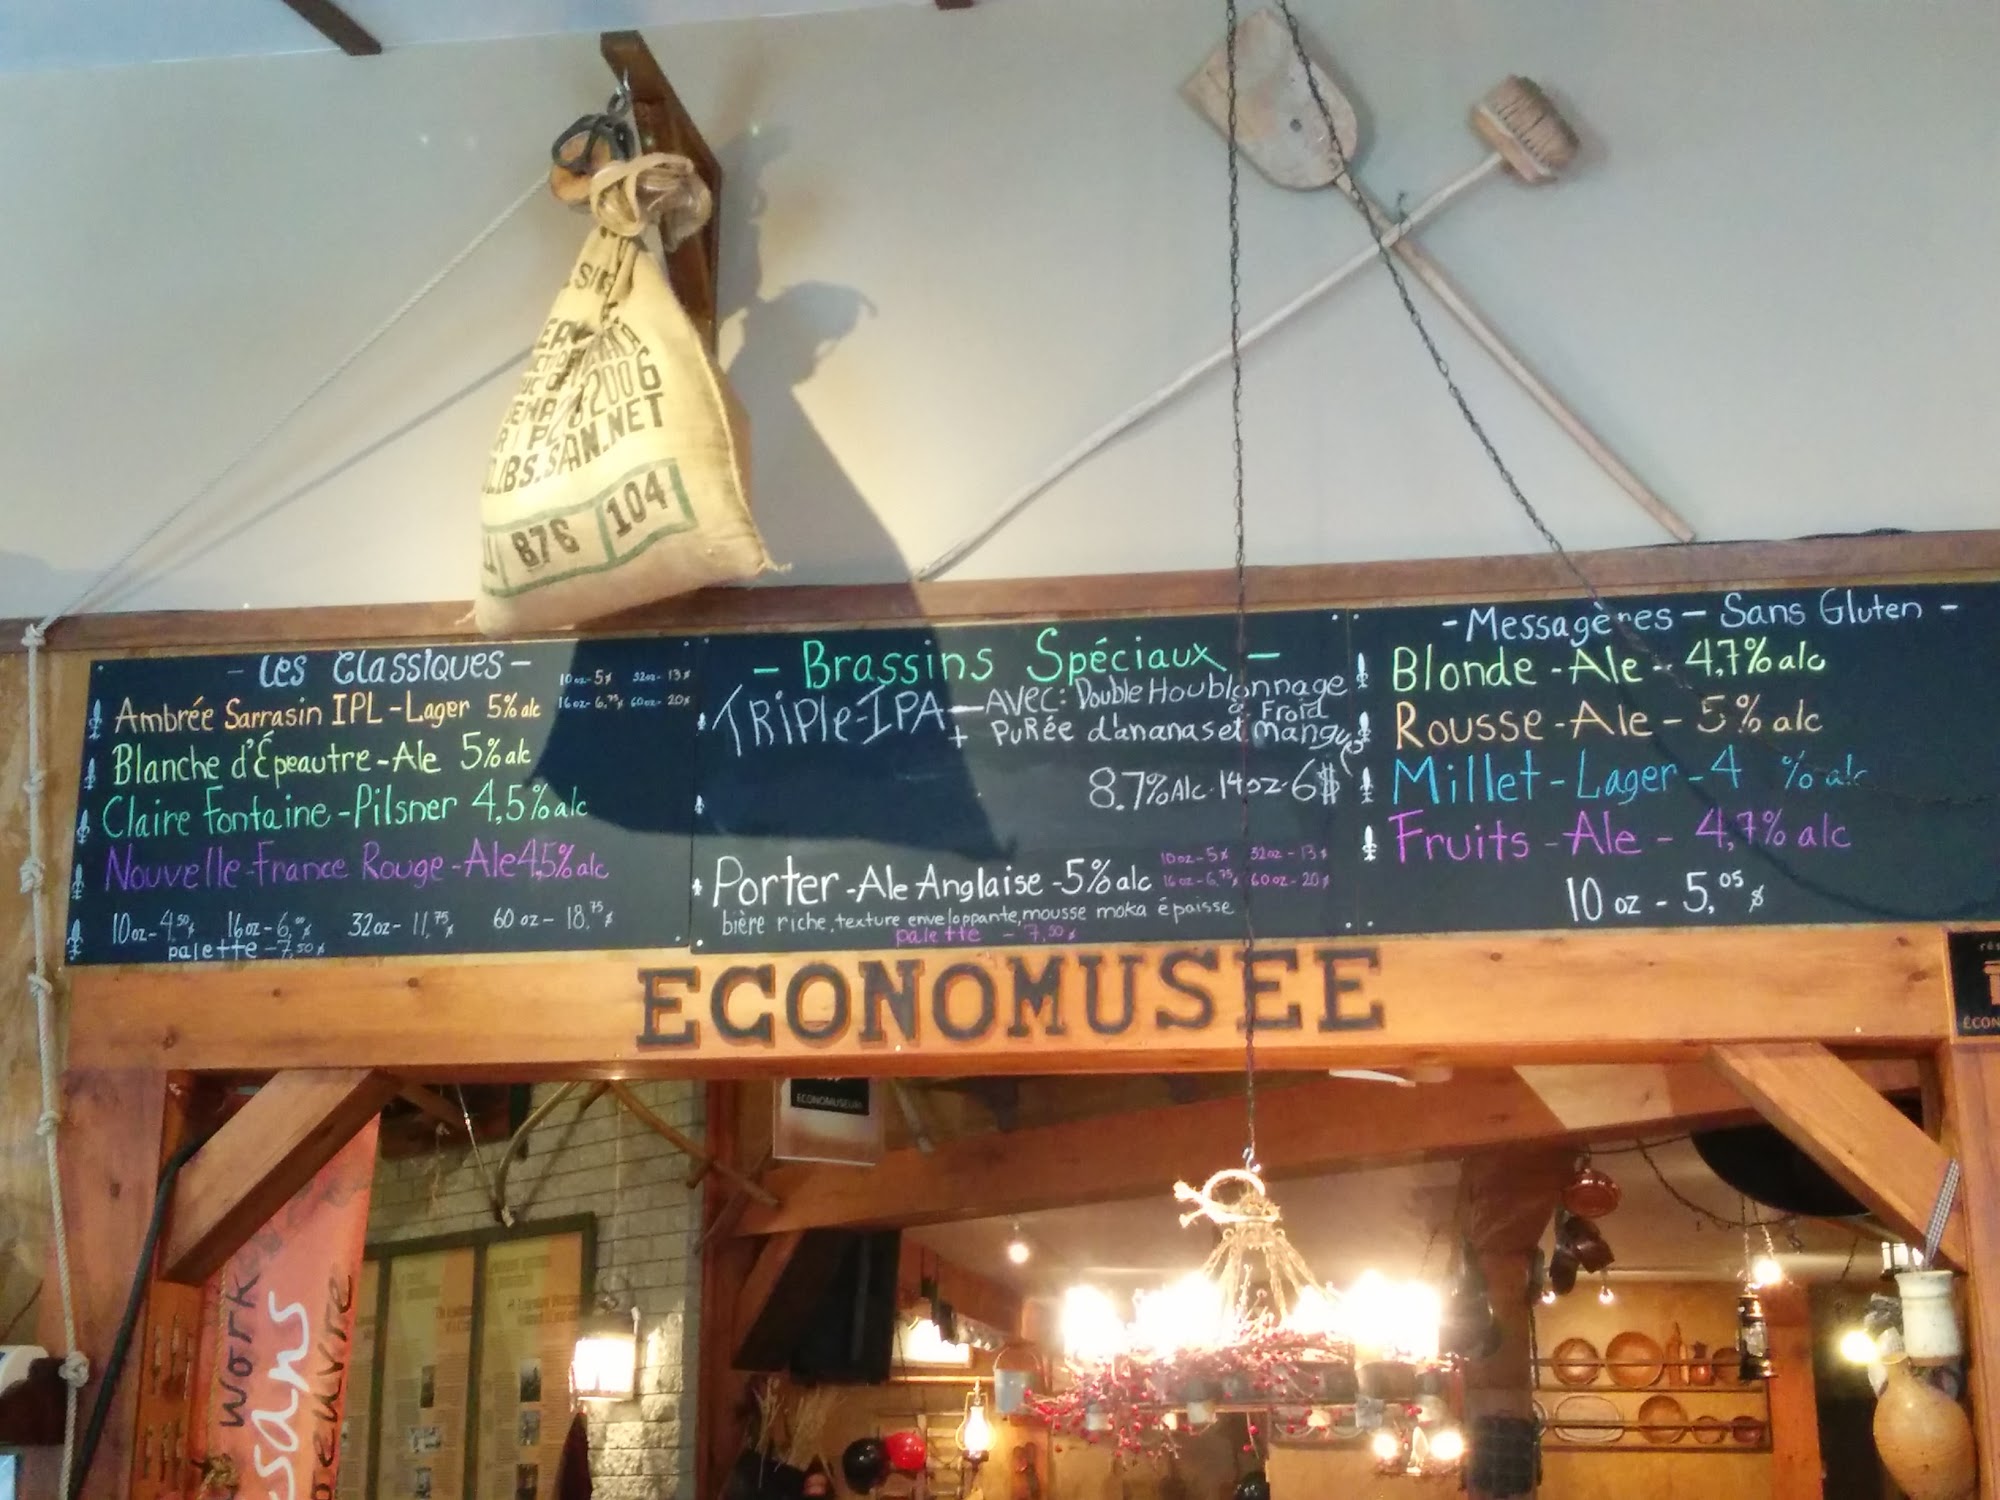 2006
LBS.SAN.NET
876 104
- Les Classiques -
10oz - 5$ 32oz - 13$
16oz - 6,75$ 60oz - 20$
Ambrée Sarrasin IPL - Lager 5% alc
Blanche d'Épeautre - Ale 5% alc
Claire Fontaine - Pilsner 4,5% alc
Nouvelle-France Rouge - Ale 4,5% alc
10oz - 4,50$ 16oz - 6,00$ 32oz - 11,75$ 60 oz - 18,75$
palette - 7,50$
- Brassins Spéciaux -
Triple-IPA - Avec: Double Houblonnage
à Froid
+ Purée d'ananas et mangues
8.7% Alc. 14oz - 6$
Porter - Ale Anglaise - 5% alc
10oz - 5$ 32oz - 13$
16oz - 6,75$ 60oz - 20$
bière riche, texture enveloppante, mousse moka épaisse
palette - 7,50$
- Messagères - Sans Gluten -
Blonde - Ale - 4,7% alc
Rousse - Ale - 5% alc
Millet - Lager - 4 % alc
Fruits - Ale - 4,7% alc
10 oz - 5,05$
ECONOMUSEE
ÉCON
ECONOMUSEUM
work
sans
oeuvre